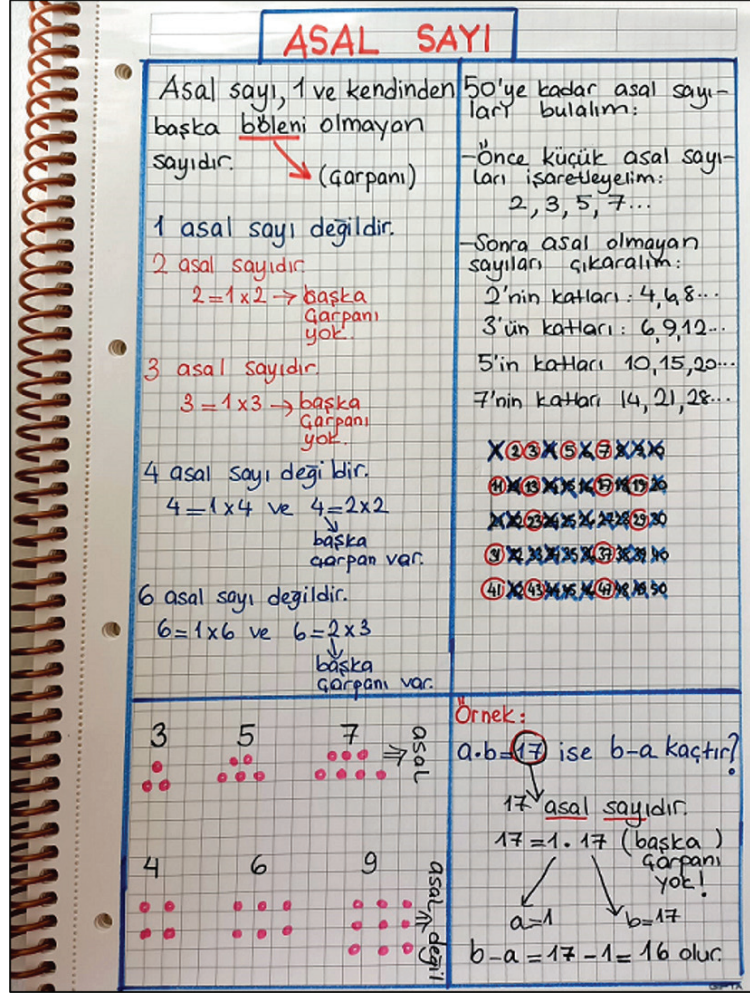 ASAL SAYI
Asal sayı, 1 ve kendinden
başka böleni olmayan
sayıdır.
(Çarpanı)
1 asal sayı değildir.
2 asal sayıdır.
2=1x2 → başka
Çarpanı
yok.
3 asal sayıdır.
3=1x3 → başka
Çarpanı
yok.
4 asal sayı değildir.
4=1x4 ve 4=2x2
başka
Çarpan var.
6 asal sayı değildir.
6=1x6 ve 6=2x3
başka
Çarpanı var.
50'ye kadar asal sayı-
ları bulalım:
-Önce küçük asal sayı-
ları işaretleyelim:
2, 3, 5, 7...
-Sonra asal olmayan
sayıları çıkaralım:
2'nin katları: 4,6,8...
3'ün katları: 6,9,12...
5'in katları 10,15,20...
7'nin katları 14,21,28...
2 3 5 7
11 13 17 18 19 20
23 25 26 27 28 29 30
31 33 35 37 38 39 40
41 43 45 47 48 49 50
3 5 7 ⇒ asal
4 6 9 ⇒ asal değil
Örnek:
a.b=17 ise b-a kaçtır?
17 asal sayıdır.
17=1.17 (başka)
Çarpanı
yok!
a=1 b=17
b-a=17-1=16 olur.